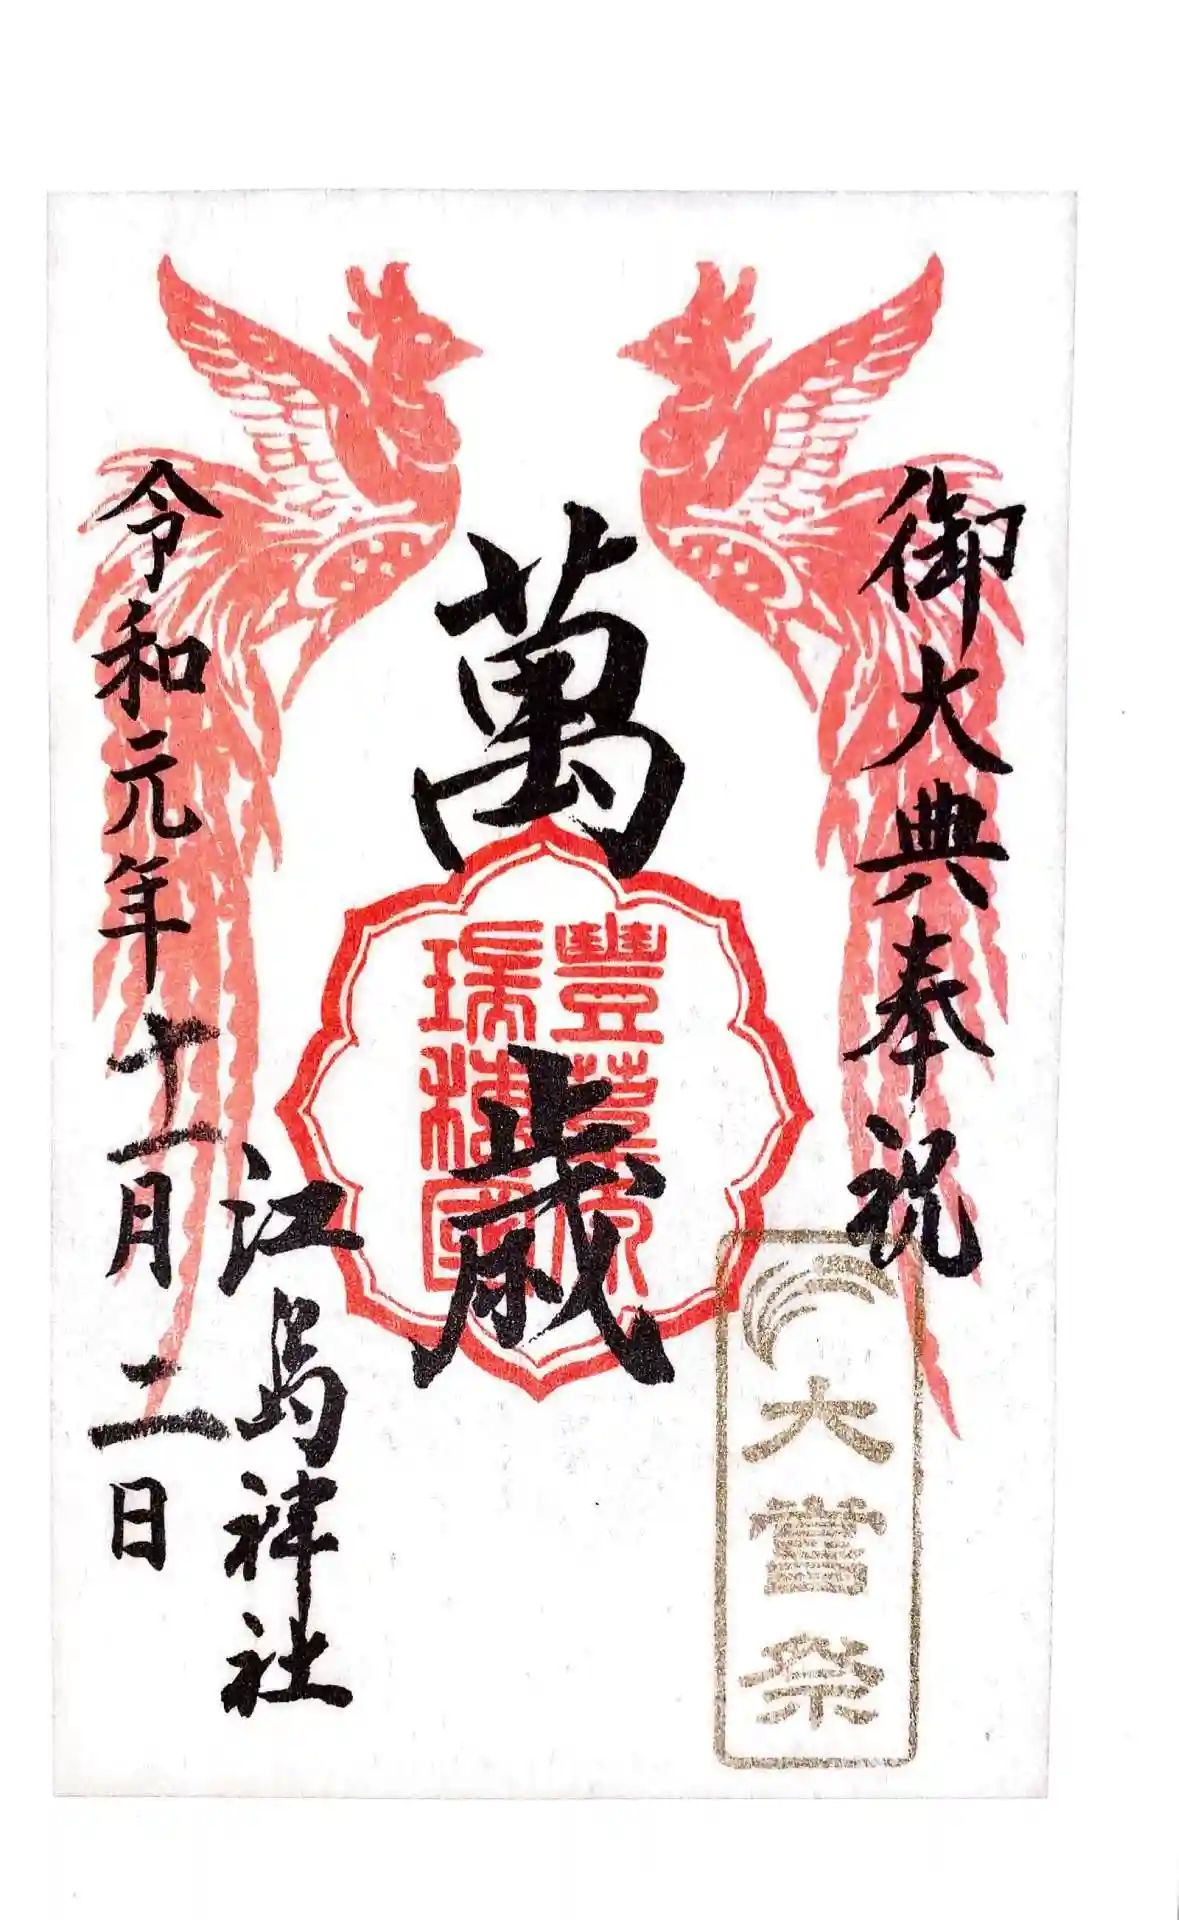 御大典奉祝
大嘗祭
萬歳
豐葦原
瑞穂國
江島神社
令和元年十一月二日